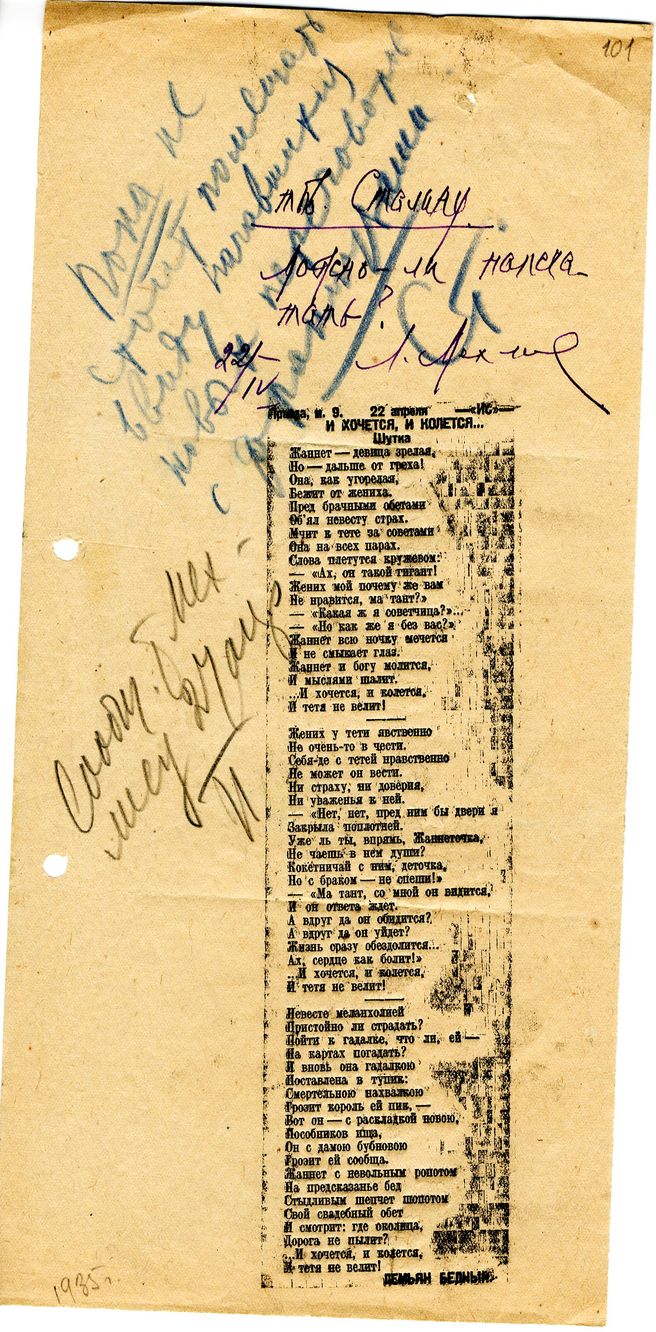 101
тов. Сталину
Можно-ли напеча-
тать?
22/IV Л. Мехлис
Пока не
стоит помещать
ввиду начавшихся
новых переговоров
с французами.
Сообщ.
Мех-
лису
Правда, м. 9. 22 апреля —«ИС»—
И ХОЧЕТСЯ, И КОЛЕТСЯ...
Шутка
Жаннет — девица зрелая,
Но — дальше от греха!
Она, как угорелая,
Бежит от жениха.
Пред брачными обетами
Об'ял невесту страх.
Мчит к тете за советами
Она на всех парах.
Слова плетутся кружевом:
— «Ах, он такой гигант!
Жених мой почему же вам
Не нравится, ма тант?»
— «Какая ж я советчица?»...
— «Но как же я без вас?»
Жаннет всю ночку мечется
И не смыкает глаз.
Жаннет и богу молится,
И мыслями шалит.
...И хочется, и колется,
И тетя не велит!
Жених у тети явственно
Не очень-то в чести.
Себя-де с тетей нравственно
Не может он вести.
Ни страху, ни доверия,
Ни уваженья к ней.
— «Нет, нет, пред ним бы двери я
Закрыла поплотней.
Уже ль ты, впрямь, Жаннеточка,
Не чаешь в нем души?
Кокетничай с ним, деточка,
Но с браком — не спеши!»
— «Ма тант, со мной он видится,
И он ответа ждет.
А вдруг да он обидится?
А вдруг да он уйдет?
Жизнь сразу обездолится...
Ах, сердце как болит!»
...И хочется, и колется,
И тетя не велит!
Невесте меланхолией
Пристойно ли страдать?
Пойти к гадалке, что ли, ей —
На картах погадать?
И вновь она гадалкою
Поставлена в тупик:
Смертельною нахвалкою
Грозит король ей пик, —
Вот он — с раскладкой новою,
Пособников ища,
Он с дамою бубновою
Грозит ей сообща.
Жаннет с невольным ропотом
На предсказанье бед
Стыдливым шепчет шопотом
Свой свадебный обет
И смотрит: где околица,
Дорога не пылит?
...И хочется, и колется,
И тетя не велит!
ДЕМЬЯН БЕДНЫЙ
1935г.